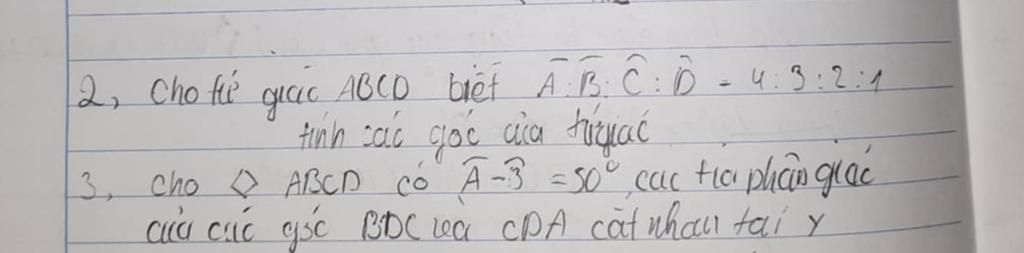 2, Cho tứ giác ABCD biết Â : B̂ : Ĉ : D̂ = 4 : 3 : 2 : 1
tính các góc của tứ giác
3, cho ◇ ABCD có Â - B̂ = 50°, các tia phân giác
của các góc BDC và CDA cắt nhau tại Y